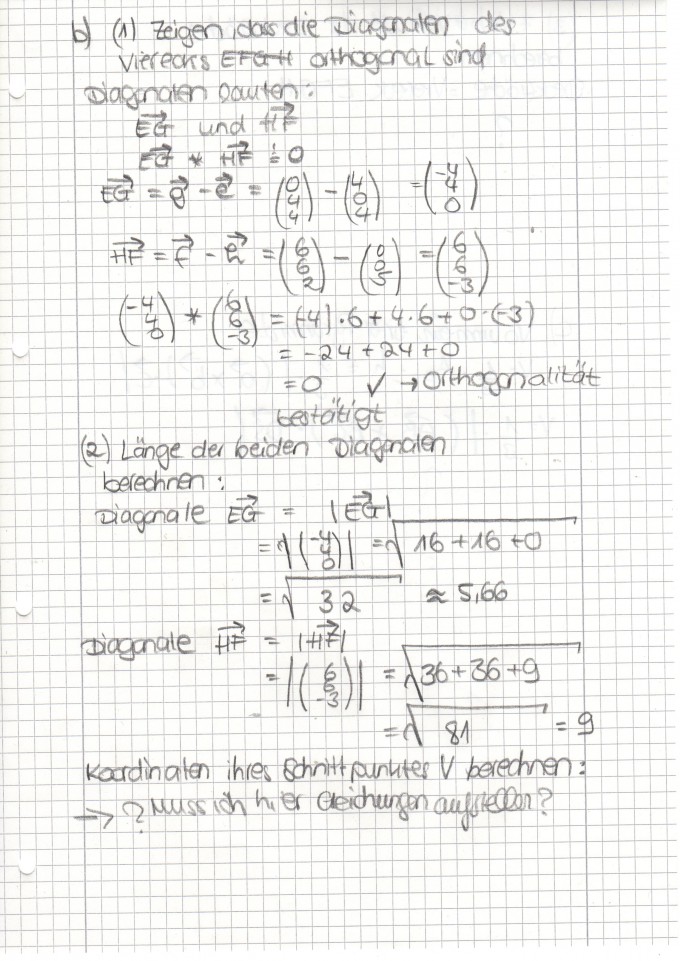 b) (1) Zeigen, dass die Diagonalen des
Vierecks EFGH orthogonal sind
Diagonalen lauten:
→EG und →HF
→EG * →HF != 0
→EG = →g - →e = (0 4 4) - (4 0 4) = (-4 4 0)
→HF = →f - →h = (6 6 2) - (0 0 5) = (6 6 -3)
(-4 4 0) * (6 6 -3) = (-4)·6+4·6+0·(-3)
= -24+24+0
= 0 ✓ → Orthogonalität
bestätigt
(2) Länge der beiden Diagonalen
berechnen:
Diagonale →EG = |→EG|
= |(-4 4 0)| = √16+16+0
= √32 ≈ 5,66
Diagonale →HF = |→HF|
= |(6 6 -3)| = √36+36+9
= √81 = 9
Koordinaten ihres Schnittpunktes V berechnen:
→ ? Muss ich hier Gleichungen aufstellen?